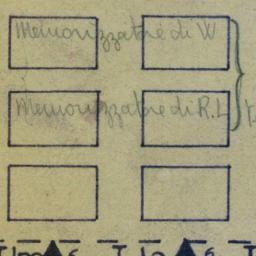 Memorizzatore di W
Memorizzatore di R.L